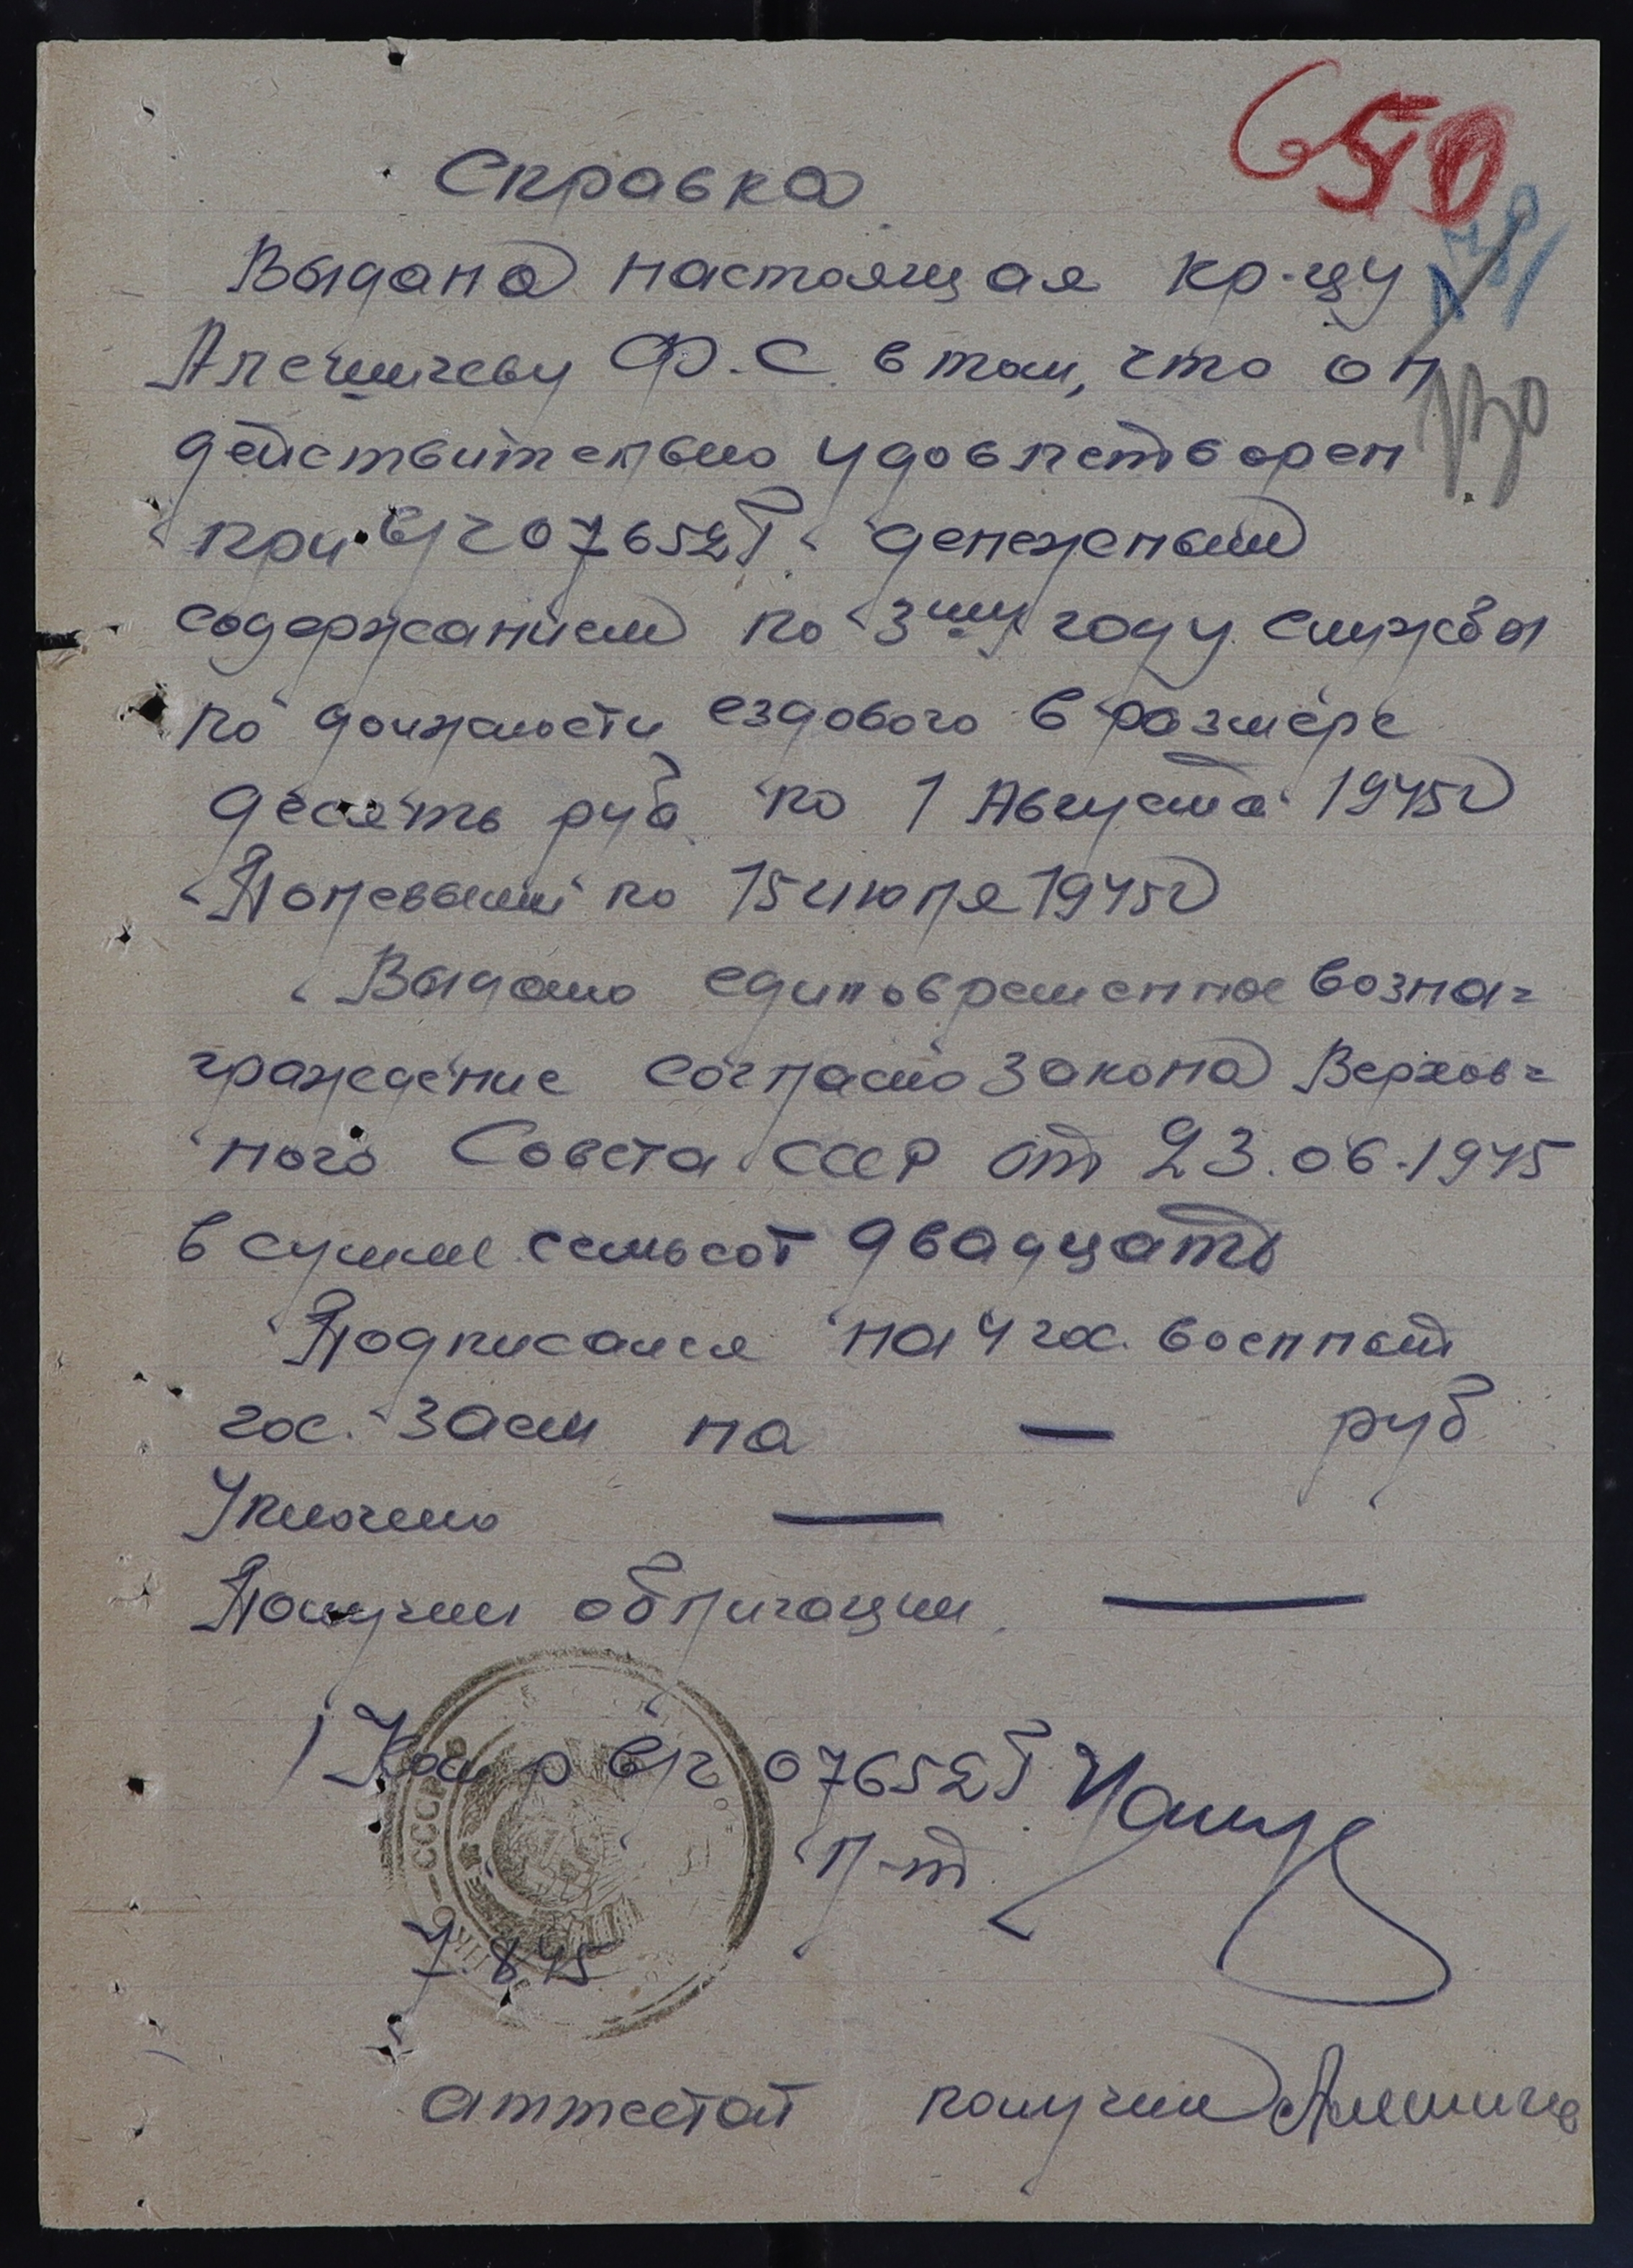 650
Справка
Выдана настоящая кр-цу
Алешичеву Ф.С. в том, что он
130
действительно удовлетворен
при в/ч 07652Т денежным
содержанием по 3му году службы
по должности ездового в размере
десять руб по 1 Августа 1945г
Полевыми по 15 июля 1945г
Выдано единовременное возна=
граждение согласно закона Верхов=
ного Совета СССР от 23.06.1945
в сумме семьсот двадцать
Подписался на 4 гос. военный
гос. заем на — руб
Уплочено —
Получил облигации —
Ком-р в/ч 07652Т
л-т
СССР
7.8.45
аттестат получил Алешичев